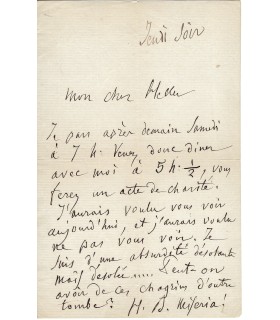 Jeudi Soir
Mon cher Heller
Je pars après demain Samedi
à 7 h. Venez donc diner
avec moi à 5 h. ½, vous
ferez un acte de charité.
J'aurais voulu vous voir
aujourd'hui, et j'aurais voulu
ne pas vous voir. Je
suis d'une absurdité désolante
mais désolée..... Peut on
avoir de ces chagrins d'outre
tombe? H. B. Miseria!